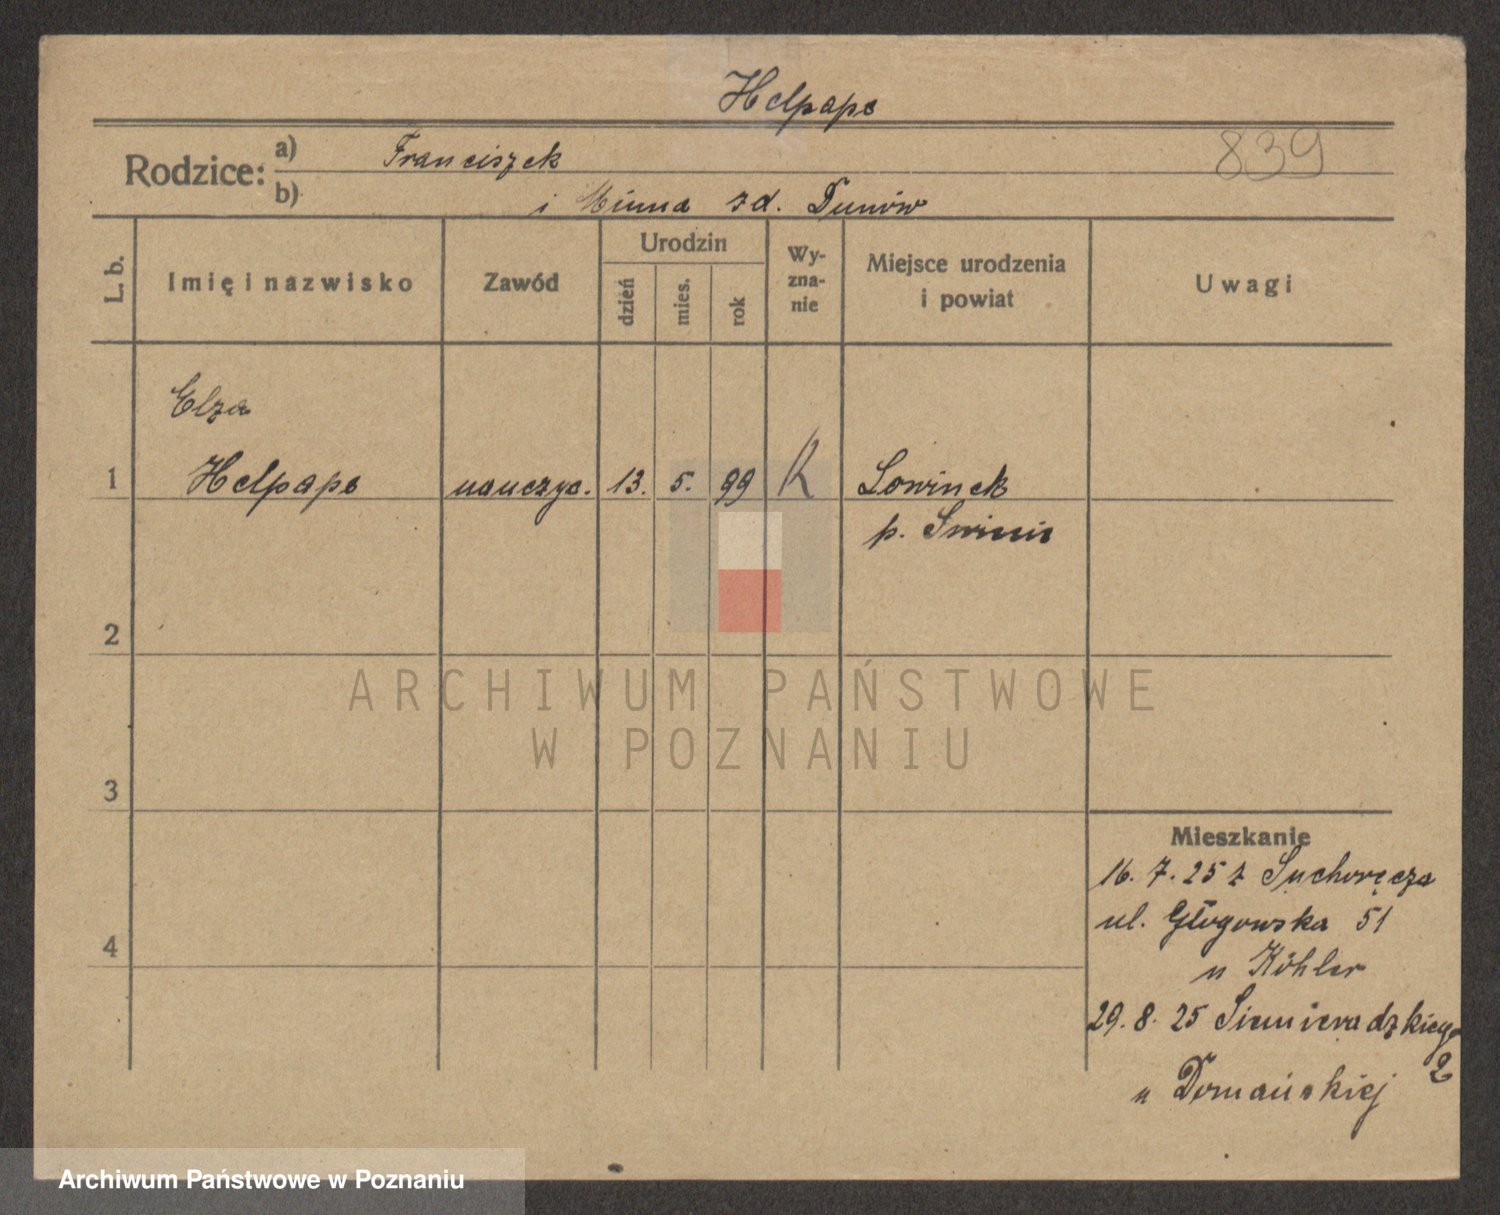 Helpape
839
Rodzice:
a) Franciszek
b) i Minna zd. Dunów
L. b.
Imię i nazwisko
Zawód
Urodzin
dzień
mies.
rok
Wy-
zna-
nie
Miejsce urodzenia
i powiat
Uwagi
Elza
1 Helpape nauczyc. 13. 5. 99 K Lowinek
p. Swiecie
2
3
4
Mieszkanie
16. 7. 25 z Suchoręcza
ul. Głogowska 51
u Köhler
29. 8. 25 Siemieradzkiego
2
u Domańskiej
ARCHIWUM PAŃSTWOWE
W POZNANIU
Archiwum Państwowe w Poznaniu